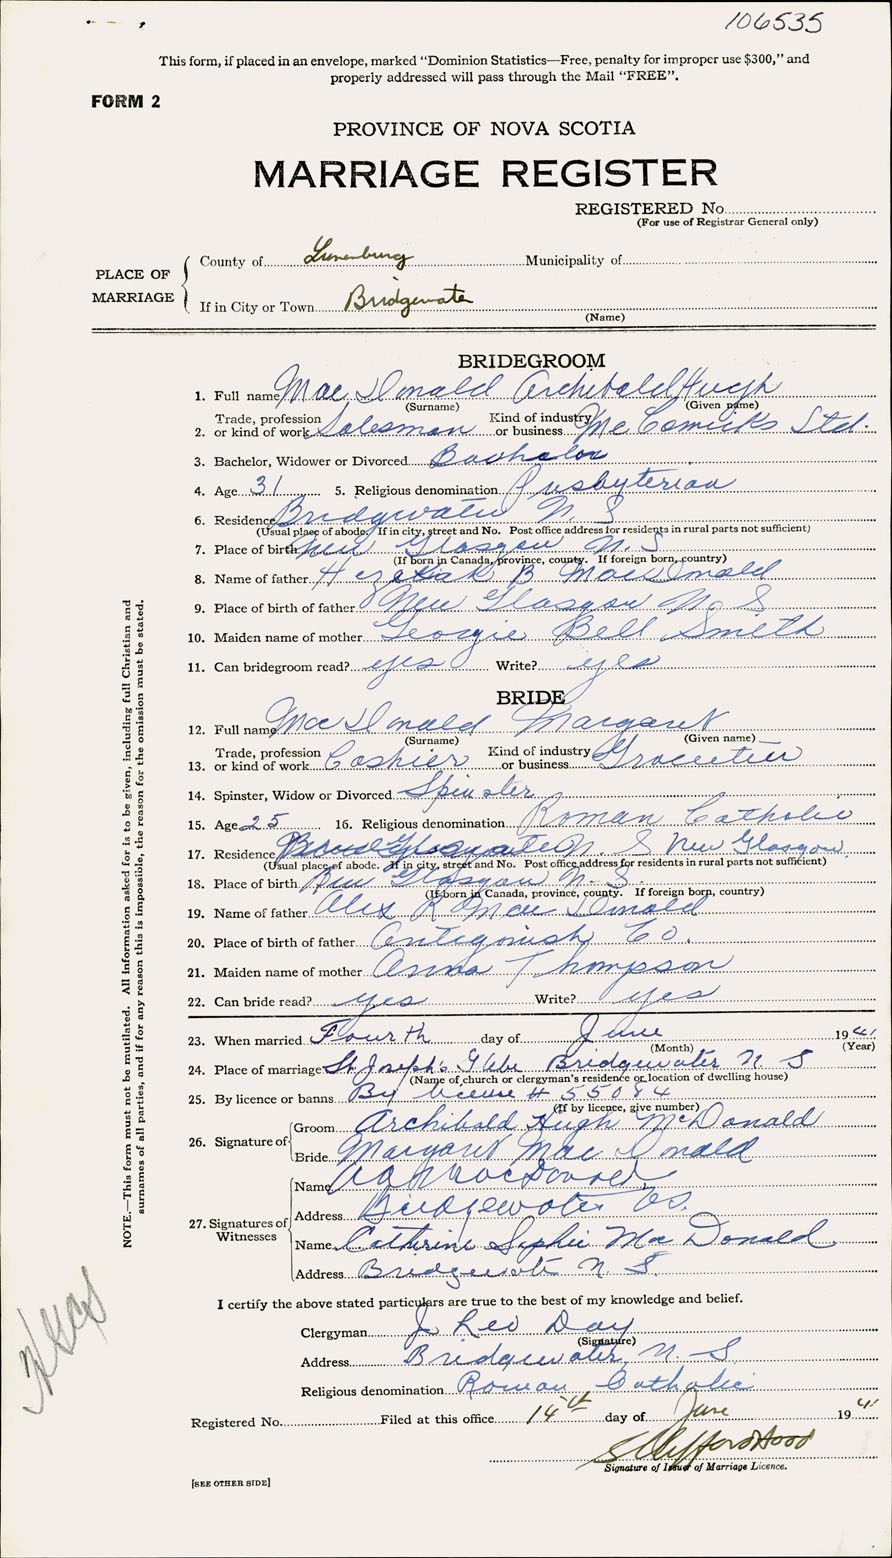 106535
This form, if placed in an envelope, marked "Dominion Statistics—Free, penalty for improper use $300," and
properly addressed will pass through the Mail "FREE".
FORM 2
PROVINCE OF NOVA SCOTIA
MARRIAGE REGISTER
REGISTERED No.
(For use of Registrar General only)
PLACE OF MARRIAGE
County of Lunenburg Municipality of
If in City or Town Bridgewater
(Name)
BRIDEGROOM
1. Full name Mac Donald Archibald Hugh
(Surname) (Given name)
2. Trade, profession or kind of work Salesman Kind of industry or business Mc Cormicks Ltd.
3. Bachelor, Widower or Divorced Bachelor
4. Age 31 5. Religious denomination Presbyterian
6. Residence Bridgwater N. S
(Usual place of abode. If in city, street and No. Post office address for residents in rural parts not sufficient)
7. Place of birth New Glasgow N. S
(If born in Canada, province, county. If foreign born, country)
8. Name of father B MacDonald
9. Place of birth of father New Glasgow N. S
10. Maiden name of mother Georgie Bell Smith
11. Can bridegroom read? yes Write? yes
BRIDE
12. Full name Mac Donald Margaret
(Surname) (Given name)
13. Trade, profession or kind of work Cashier Kind of industry or business
14. Spinster, Widow or Divorced Spinster
15. Age 25 16. Religious denomination Roman Catholic
17. Residence N S New Glasgow
(Usual place of abode. If in city, street and No. Post office address for residents in rural parts not sufficient)
18. Place of birth New Glasgow N. S
(If born in Canada, province, county. If foreign born, country)
19. Name of father Alex R Mac Donald
20. Place of birth of father Antigonish Co.
21. Maiden name of mother Anna Thompson
22. Can bride read? yes Write? yes
23. When married Fourth day of June 1941
(Month) (Year)
24. Place of marriage St Joseph's Glebe Bridgewater N. S
(Name of church or clergyman's residence or location of dwelling house)
25. By licence or banns By license # 55084
(If by licence, give number)
26. Signature of
Groom Archibald Hugh McDonald
Bride Margaret Mac Donald
27. Signatures of Witnesses
Name MacDonald
Address Bridgewater
Name Catherine Sophie Mac Donald
Address Bridgewater N. S.
I certify the above stated particulars are true to the best of my knowledge and belief.
Clergyman J Leo Day
(Signature)
Address Bridgewater, N-S
Religious denomination Roman Catholic
Registered No. Filed at this office 14th day of June 1941
Signature of Issuer of Marriage Licence.
[SEE OTHER SIDE]
NOTE.—This form must not be mutilated. All information asked for is to be given, including full Christian and
surnames of all parties, and if for any reason this is impossible, the reason for the omission must be stated.